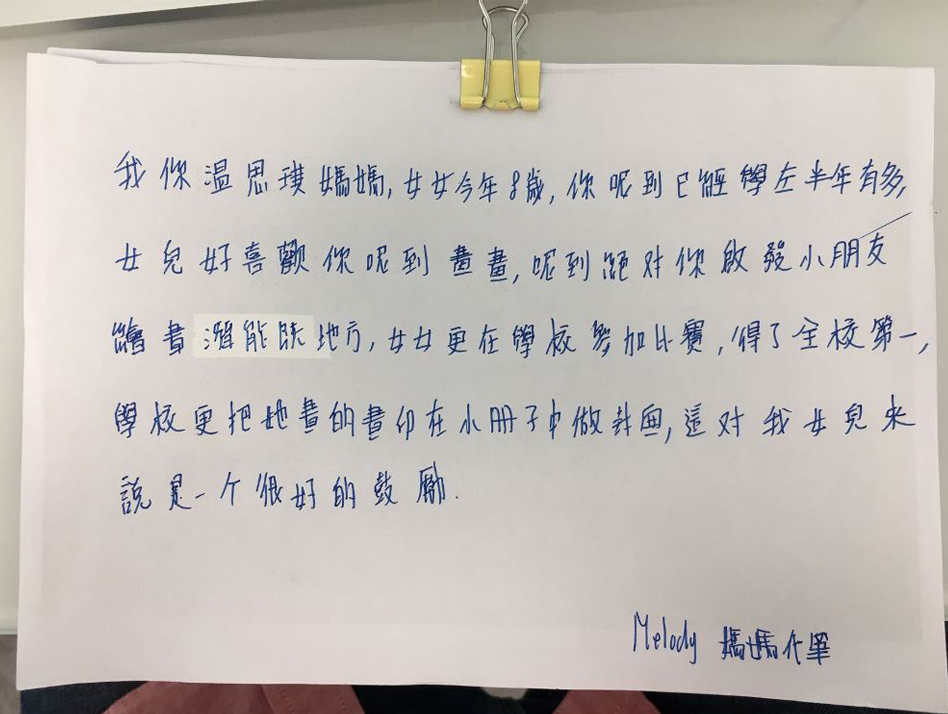 我係温思璞媽媽,女女今年8歲,係呢到已經學左半年有多,
女兒好喜歡係呢到畫畫,呢到絕对係啟發小朋友
繪畫潛能既地方,女女更在學校參加比賽,得了全校第一,
學校更把她畫的畫印在小册子中做封面,這对我女兒來
說是一个很好的鼓勵.
Melody 媽媽代筆